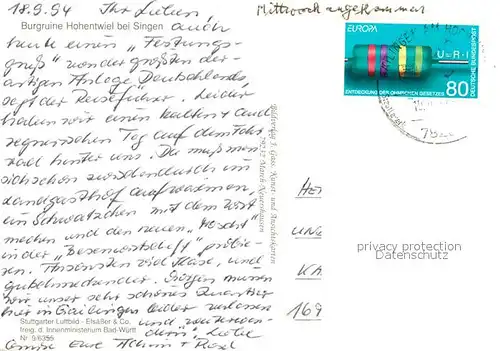 18.9.94 Ihr Lieben
Mittwoch angekommen
Burgruine Hohentwiel bei Singen auch
heute einen "Festungs-
gruß" von der größten der
artigen Anlage Deutschlands
sagt der Reiseführer. Leider
haben wir einen kalten und
regnerischen Tag auf dem Fahr
rad hinter uns. Da muß man
sich schon zwischendurch im
Landgasthof aufwärmen,
ein Schwätzchen mit dem Wirt
machen und den neuen "Most"
in der "Besenwirtschaft" probie-
sen. Ansonsten sind Hase, und
Morgen müssen
wir unser sehr schönes Quartier
hier in Gailingen leider verlassen
und weiterwan-
dern. Liebe
Grüße Eure Achim +
Stuttgarter Luftbild - Elsäßer & Co.
freig. d. Innenministerium Bad-Württ
Nr 9/6356
Bildverlag J. Gass, Kunst- und Ansichtskarten
March-Neuershausen
EUROPA
U=R·I
ENTDECKUNG DES OHMSCHEN GESETZES
80
DEUTSCHE BUNDESPOST
privacy protection
Datenschutz
169